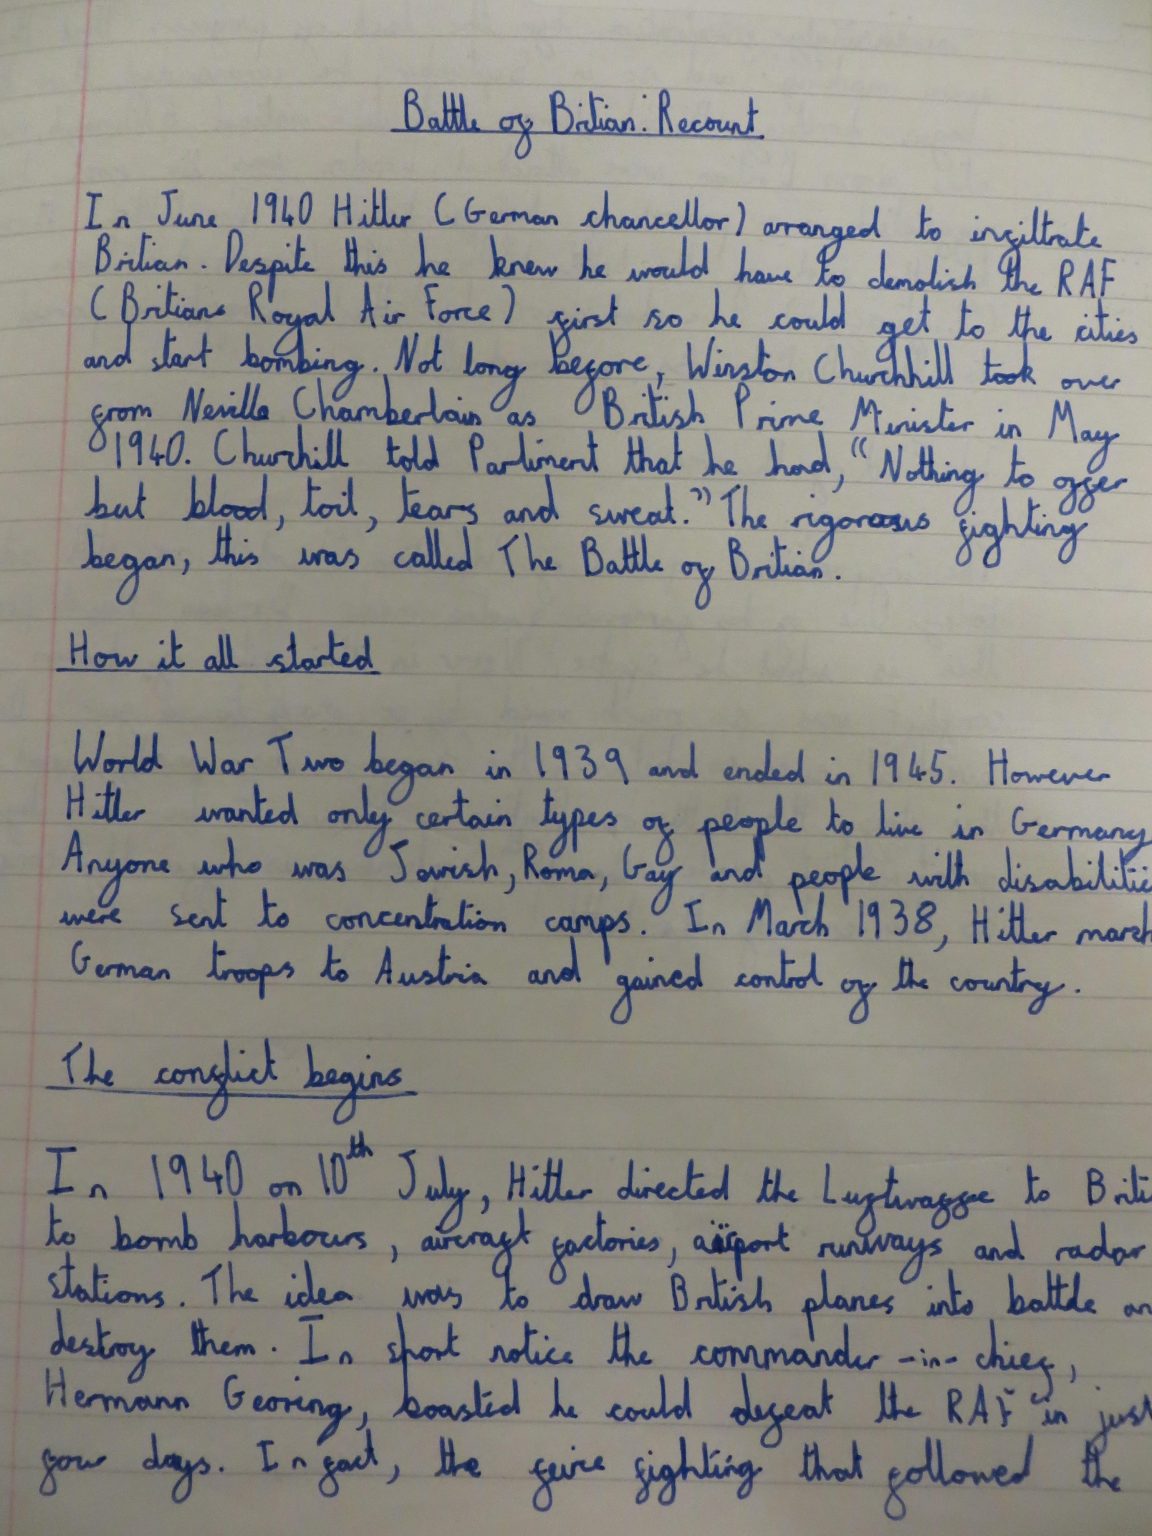 Battle of Britian: Recount
In June 1940 Hitler (German chancellor) arranged to infiltrate
Britian. Despite this he knew he would have to demolish the RAF
(Britians Royal Air Force) first so he could get to the cities
and start bombing. Not long before, Winston Churchhill took over
from Neville Chamberlain as British Prime Minister in May
1940. Churchill told Parliment that he had, "Nothing to offer
but blood, toil, tears and sweat." The rigorous fighting
began, this was called The Battle of Britian.
How it all started
World War Two began in 1939 and ended in 1945. However
Hitler wanted only certain types of people to live in Germany
Anyone who was Jewish, Roma, Gay and people with disabilitie
were sent to concentration camps. In March 1938, Hitler march
German troops to Austria and gained control of the country.
The conflict begins
In 1940 on 10th July, Hitler directed the Luftwaffe to Briti
to bomb harbours, aircraft factories, airport runways and radar
stations. The idea was to draw British planes into battle an
destroy them. In short notice the commander-in-chief,
Hermann Georing, boasted he could defeat the RAF in just
four days. In fact, the feirce fighting that followed the